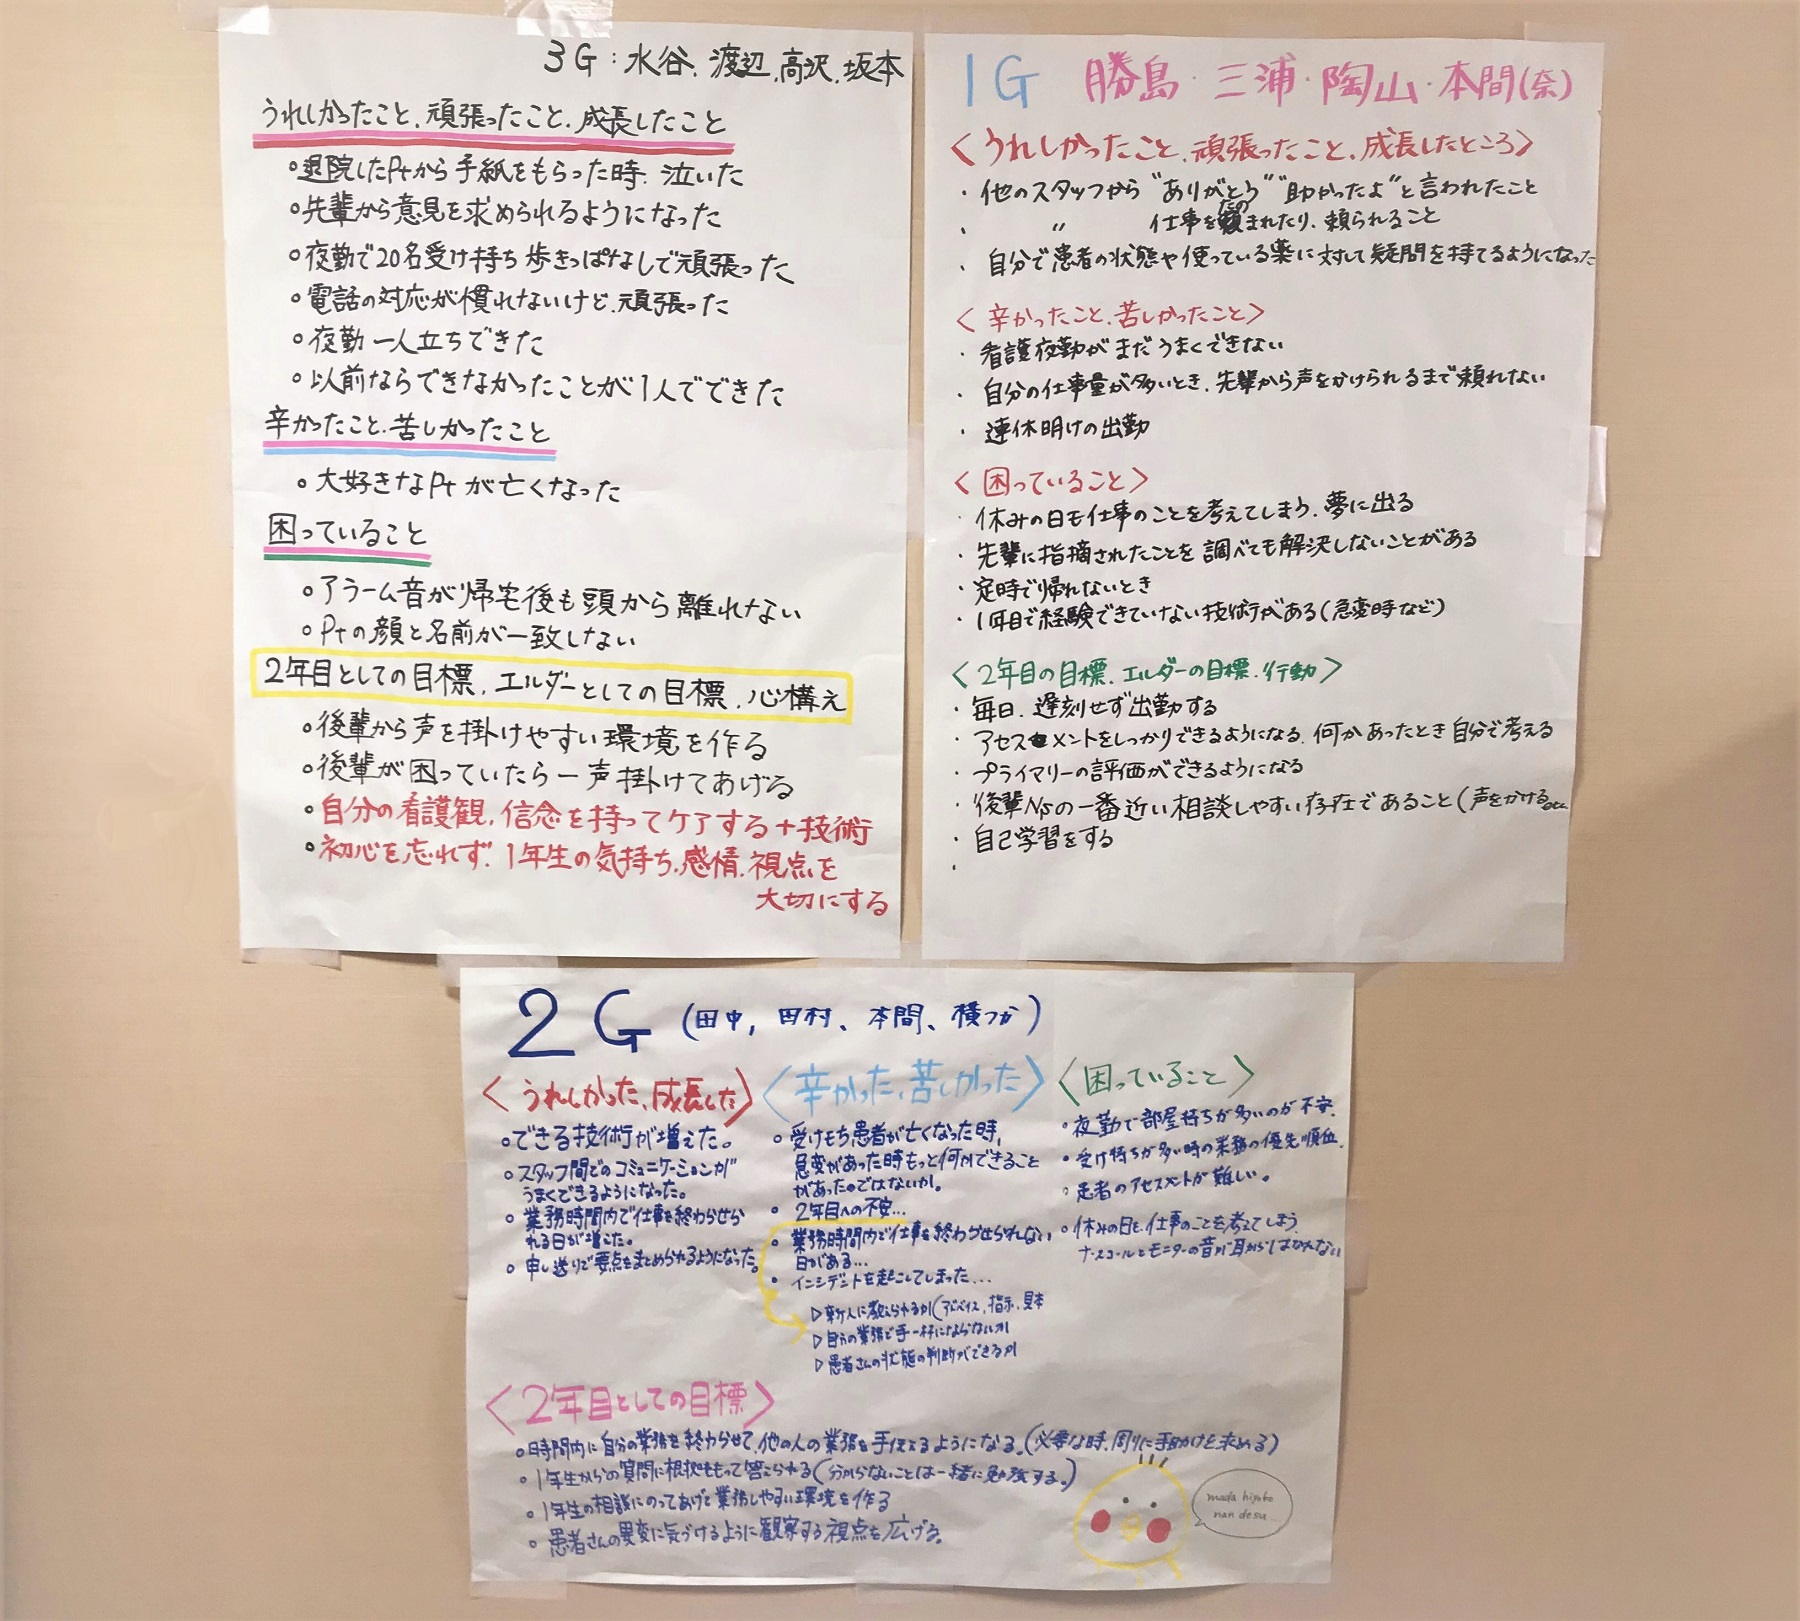 3G：水谷、渡辺、高沢、坂本
うれしかったこと、頑張ったこと、成長したこと
○退院したPtから手紙をもらった時、泣いた
○先輩から意見を求められるようになった
○夜勤で20名受け持ち歩きっぱなしで頑張った
○電話の対応が慣れないけど、頑張った
○夜勤一人立ちできた
○以前ならできなかったことが1人でできた
辛かったこと、苦しかったこと
○大好きなPtが亡くなった
困っていること
○アラーム音が帰宅後も頭から離れない
○Ptの顔と名前が一致しない
2年目としての目標、エルダーとしての目標、心構え
○後輩から声を掛けやすい環境を作る
○後輩が困っていたら一声掛けてあげる
●自分の看護観、信念を持ってケアする＋技術
●初心を忘れず、1年生の気持ち、感情、視点を
大切にする
1G 勝島・三浦・陶山・本間(奈)
＜うれしかったこと、頑張ったこと、成長したところ＞
・他のスタッフから“ありがとう”“助かったよ”と言われたこと
・〃 仕事を頼まれたり、頼られること
・自分で患者の状態や使っている薬に対して疑問を持てるようになった
＜辛かったこと、苦しかったこと＞
・看護夜勤がまだうまくできない
・自分の仕事量が多いとき、先輩から声をかけられるまで頼れない
・連休明けの出勤
＜困っていること＞
・休みの日も仕事のことを考えてしまう、夢に出る
・先輩に指摘されたことを調べても解決しないことがある
・定時で帰れないとき
・1年目で経験できていない技術がある(急変時など)
＜2年目の目標、エルダーの目標、行動＞
・毎日、遅刻せず出勤する
・アセスメントをしっかりできるようになる、何かあったとき自分で考える
・プライマリーの評価ができるようになる
・後輩Nsの一番近い相談しやすい存在であること(声をかけるetc
・自己学習をする
・
2G (田中, 田村、本間、横つか)
＜うれしかった、成長した＞
○できる技術が増えた。
○スタッフ間でのコミュニケーションが
うまくできるようになった。
○業務時間内で仕事を終わらせら
れる日が増えた。
○申し送りで要点をまとめられるようになった。
＜辛かった、苦しかった＞
○受けもち患者が亡くなった時、
急変があった時もっと何かできること
があったのではないか。
・2年目への不安…
・業務時間内で仕事を終わらせられない
日がある…
・インシデントを起こしてしまった…
▷新人に教えられるか(アドバイス、指示、見本
▷自分の業務で手一杯にならないか
▷患者さんの状態の判断ができるか
＜困っていること＞
○夜勤で部屋持ちが多いのが不安.
・受け持ちが多い時の業務の優先順位.
○患者のアセスメントが難しい。
○休みの日も、仕事のことを考えてしまう
ナースコールとモニターの音が耳からはなれない
＜2年目としての目標＞
○時間内に自分の業務を終わらせて、他の人の業務を手伝えるようになる。(必要な時、周りに手助けを求める)
○1年生からの質問に根拠をもって答えられる(分からないことは一緒に勉強する。)
○1年生の相談にのってあげて業務しやすい環境を作る
○患者さんの異変に気づけるように観察する視点を広げる。
mada hiyoko
nan desu...